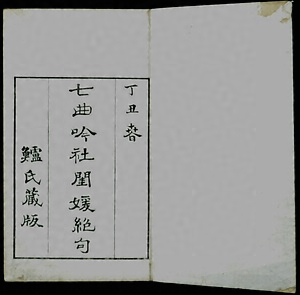 丁丑春
七曲吟社閨媛絕句
鱸氏藏版